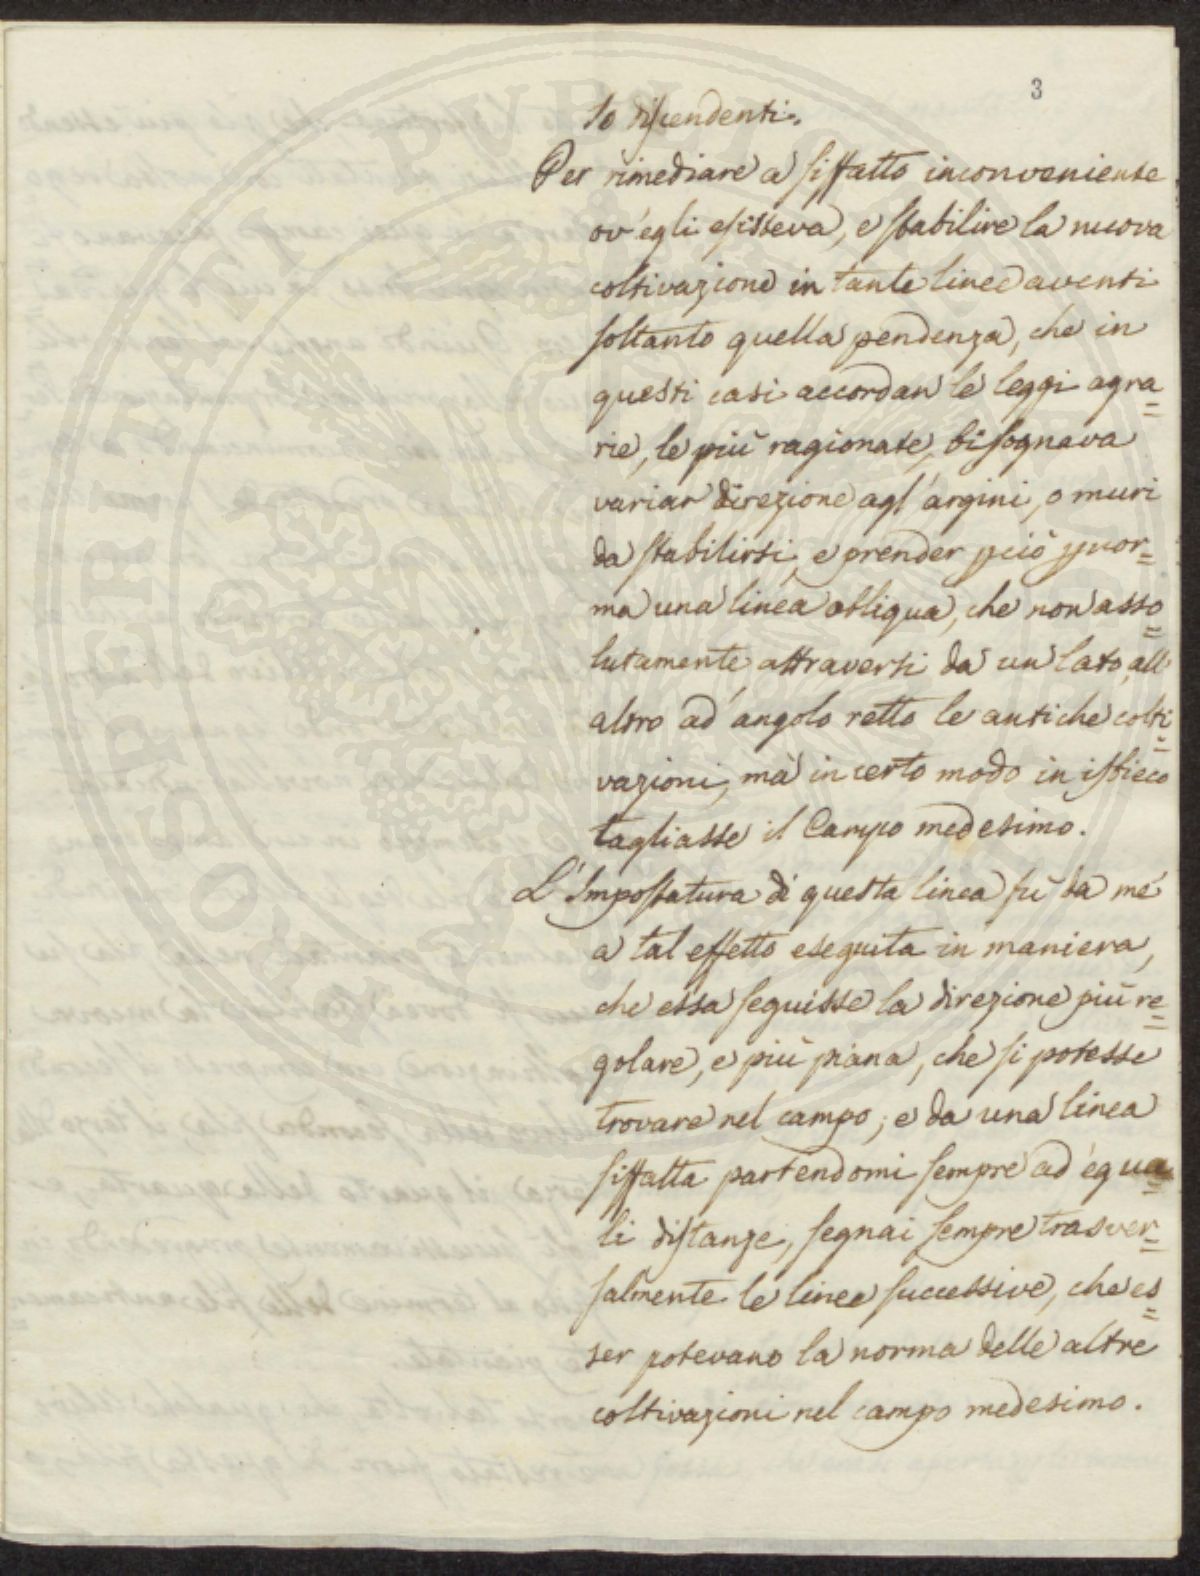 3
so discendenti.
Per rimediare a siffatto inconveniente
ov'egli esisteva, e stabilire la nuova
coltivazione in tante linee aventi
soltanto quella pendenza, che in
questi casi accordan le leggi agra=
rie, le più ragionate, bisognava
variar direzione agl'argini, o muri
da stabilirsi, e prender pciò p nor=
ma una linea obliqua, che non asso=
lutamente attraversi da un lato, all'
altro ad angolo retto le antiche colti=
vazioni, mà in certo modo in isbieco
tagliasse il Campo medesimo.
L'Impostatura di questa linea fù da me
a tal effetto eseguita in maniera,
che essa seguisse la direzione più re=
golare, e più piana, che si potesse
trovare nel campo; e da una linea
siffatta partendomi sempre ad egua=
li distanze, segnai sempre trasver=
salmente le linee successive, che es=
ser potevano la norma delle altre
coltivazioni nel campo medesimo.
PROSPERITATI PUBLICAE